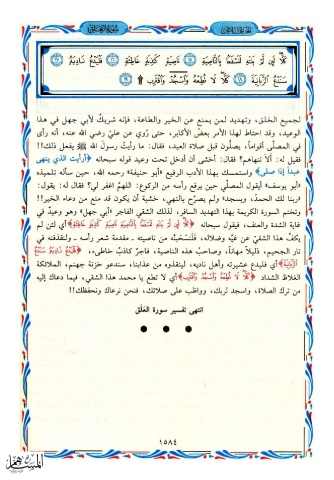 سورة العلق
كَلَّا لَئِن لَّمْ يَنتَهِ لَنَسْفَعًا بِالنَّاصِيَةِ ۝ نَاصِيَةٍ كَاذِبَةٍ خَاطِئَةٍ ۝ فَلْيَدْعُ نَادِيَهُ ۝
سَنَدْعُ الزَّبَانِيَةَ ۝ كَلَّا لَا تُطِعْهُ وَاسْجُدْ وَاقْتَرِب ۩
لجميع الخلق، وتهديد لمن يمنع عن الخير والطاعة، فإنه شريكٌ لأبي جهل في هذا
الوعيد، وقد احتاط لهذا الأمر بعضُ الأكابر، حتى رُوي عن علي رضي الله عنه، أنه رأى
في المصلَّى أقواماً، يصلُّون قبل صلاة العيد، فقال: ما رأيتُ رسول الله ﷺ يفعل ذلك!!
فقيل له: ألا تنهاهم؟ فقال: أخشى أن أدخل تحت وعيد قوله سبحانه ﴿أرأيت الذي ينهى
عبداً إذا صلى﴾ واستمسك بهذا الأدب الرفيع «أبو حنيفة» رحمه الله، حين سأله تلميذه
«أبو يوسف» أيقول المصلِّي حين يرفع رأسه من الركوع: اللهمَّ اغفر لي؟ فقال له: يقول:
ربنا لك الحمدُ، ويسجد» ولم يصرِّح بالنهي، خشية أن يكون قد منع من دعاء الخير!!
وتختم السورة الكريمة بهذا التهديد السافر، لذلك الشقي الفاجر «أبي جهل» وهو وعيدٌ في
غاية الشدة والعنف، فيقول سبحانه ﴿كَلَّا لَئِن لَّمْ يَنتَهِ لَنَسْفَعًا بِالنَّاصِيَةِ نَاصِيَةٍ كَاذِبَةٍ خَاطِئَةٍ﴾ أي لئن لم
يكفَّ هذا الشقيُّ عن غيِّه وضلاله، فلنسحبنَّه من ناصيته - مقدمة شعر رأسه - ولنقذفنه في
نار الجحيم، ذليلاً مهاناً، وصاحبُ هذه الناصية، فاجرٌ كاذبٌ خاطىء، ﴿فَلْيَدْعُ نَادِيَهُ سَنَدْعُ
الزَّبَانِيَةَ﴾ أي فليدع عشيرته وأهل ناديه، لينقذوه من عذابنا، سندعو خزنة جهنم، الملائكة
الغلاظ الشداد ﴿كَلَّا لَا تُطِعْهُ وَاسْجُدْ وَاقْتَرِب﴾ أي لا تطع يا محمد هذا الشقي، فيما دعاك إليه
من ترك الصلاة، واسجد لربك، وواظب على صلاتك، فنحن نرعاك ونحفظك!!
انتهى تفسير سورة العَلَق
١٥٨٤